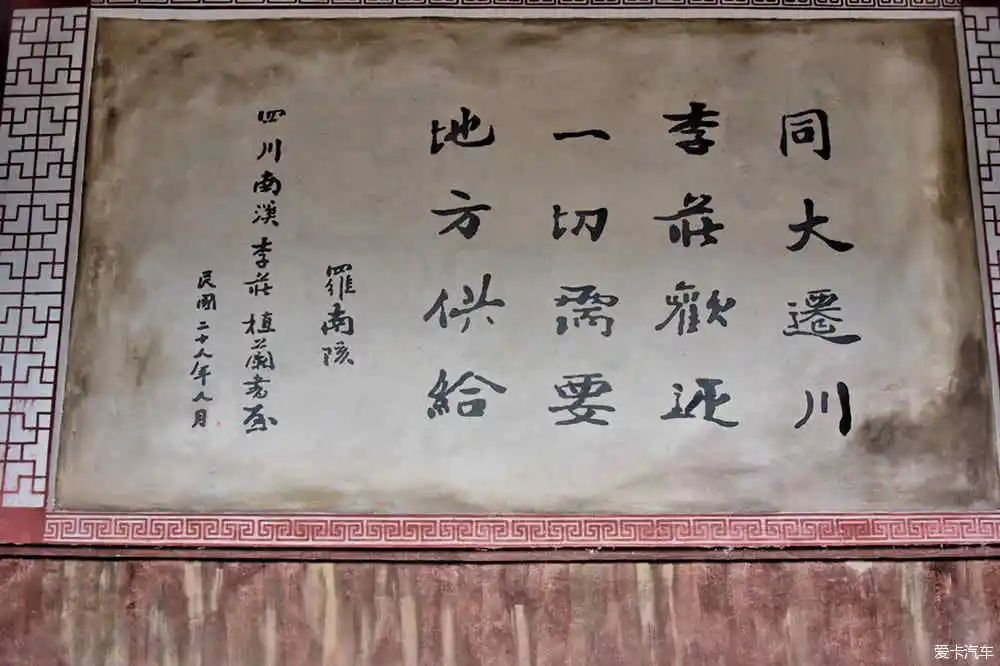 同大遷川
李莊歡迎
一切需要
地方供給
羅南陔
四川南溪李莊植蘭書屋
民國二十八年八月
爱卡汽车